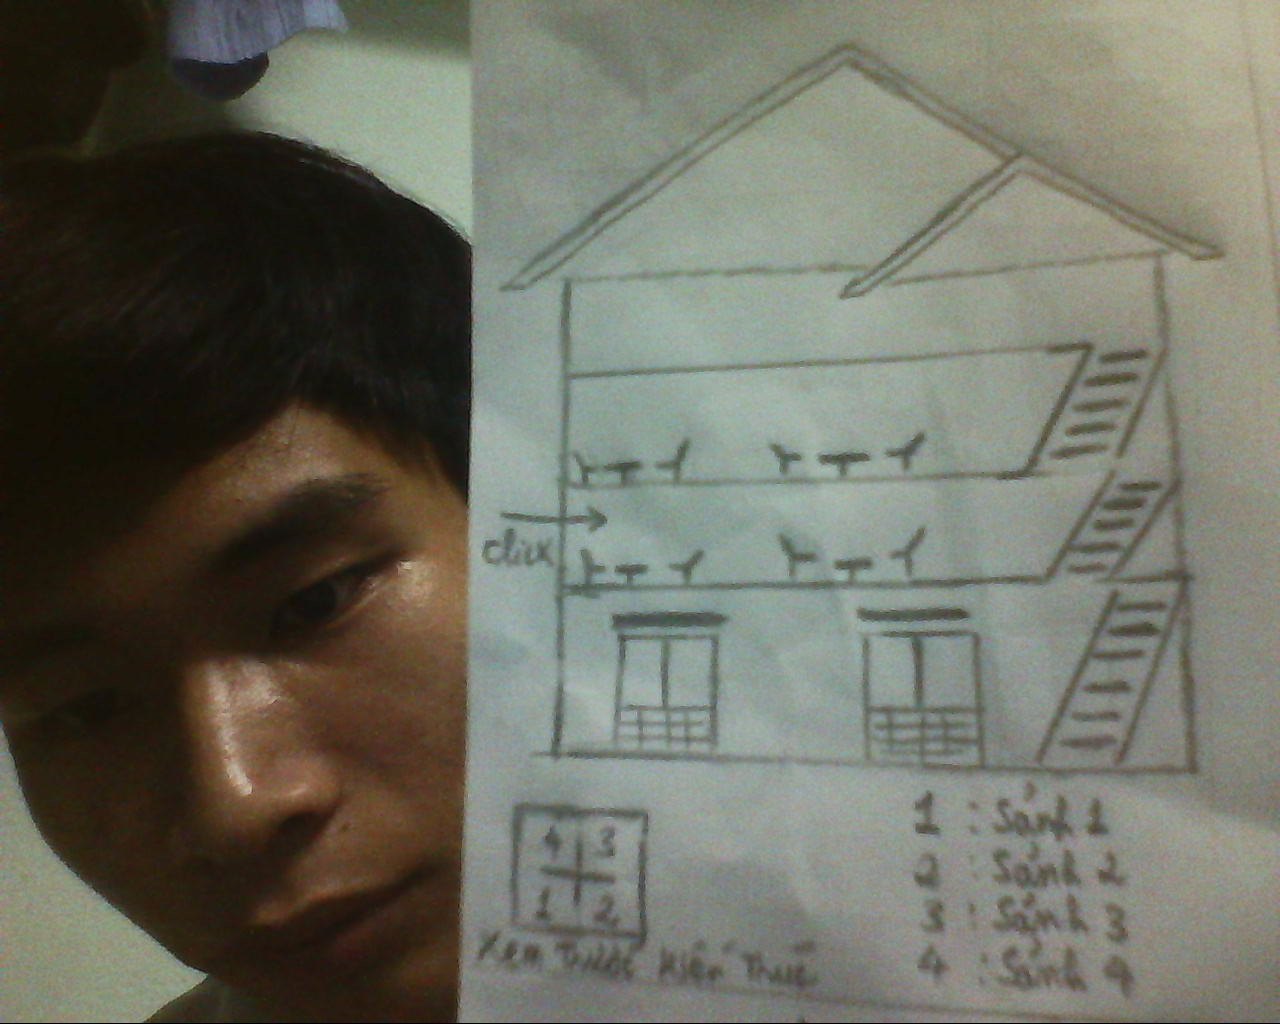 click
4 3
1 2
Xem Trước Kiến Thức
1 : Sảnh 1
2 : Sảnh 2
3 : Sảnh 3
4 : Sảnh 4